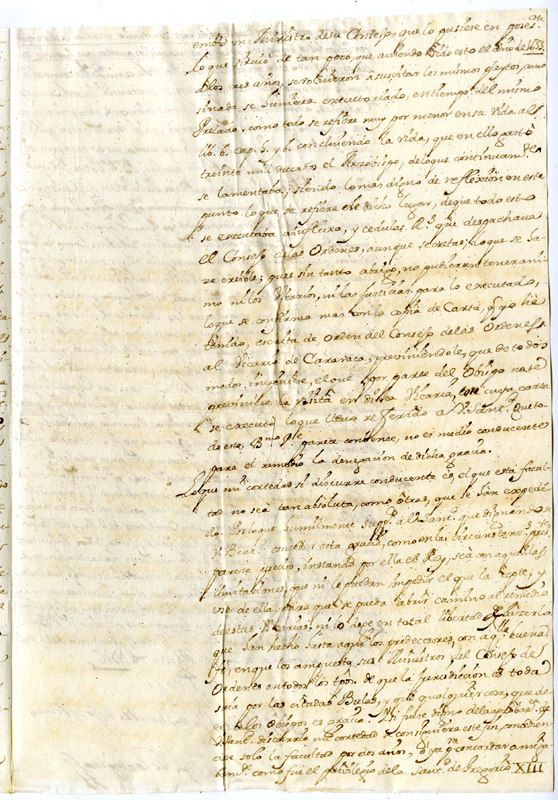 embio un Ministro de su Consejo que lo pusiese en poses.
lo que sirvio de tan poco, que auiendo sido esto el año de 1633
dos tres años, se voluieron a suscitar los mismos pleytos, como
si nada se huuiera executoriado, en tiempo del mismo
Prelado, como todo se refiere muy por menor en su vida al
lib. 6. cap. 5. y 6. concluiendo la vida, que en ello gastò
treinta mil ducados el Arzobispo, de lo que continuam.te
se lamentaba; siendo lo mas digno de reflexion en este
punto lo que se refiere en dicho lugar, de que todo esto
se executaba al influxo, y cedulas R.s que despachaua
el Consejo de las Ordenes, aunque secretas; lo que se ha-
ze creible; pues sin tanto abrigo, no pudieran tener ani-
mo ni los Vicarios, ni las Justicias para lo executado,
lo que se confirma mas con la copia de Carta, q.e yo hè
tenido, escrita de orden del Consejo de las Ordenes
al Vicario de Carauaca, preuiniendole, que de todos
modos, impidiese, el que por parte del Obispo no se
la visita en dicha Vicaria, con cuya carta
se executò lo que lleuo referido a V. Sant.d Puesto
de esto, B.mo P.e parece conuence, no es medio conducente
para el remedio la denegacion de dicha gracia.
Lo que mi cortedad si discurre conducente es, el que esta facul-
tad no sea tan absoluta, como otras, que se han expedi-
do. Por lo que humilmente sup.co a V. Sant.d que dignandose
V. Beat. conceder esta gracia, como en las circunstans.s pre-
sentes iuzgo, instando por ella el Rey, sea con aquellas
limitaciones, que ni le puedan impedir el que la acepte, y
use de ella, para que se pueda abrir camino al remedio
de estas Vicarias, ni lo dexe en total libertad de hacerla
que han hecho hasta aqui los predecesores, con aq.lla buena
fe, en que los ampuesto sus Ministros del Consejo de
Ordenes en todos los tpos. de que la jurisdiccion es toda
suia por las citadas Bulas, y que qualquier cosa, que de
a los Obispos es gracia. Si fuese digno de la aprob.on de
V. Sant.d discurria mi cortedad se consiguiera este fin, concedien-
dose solo la facultad por dos años, o ya p.a concordar
como fue el priuilegio de la Sant.d de Gregorio XIII